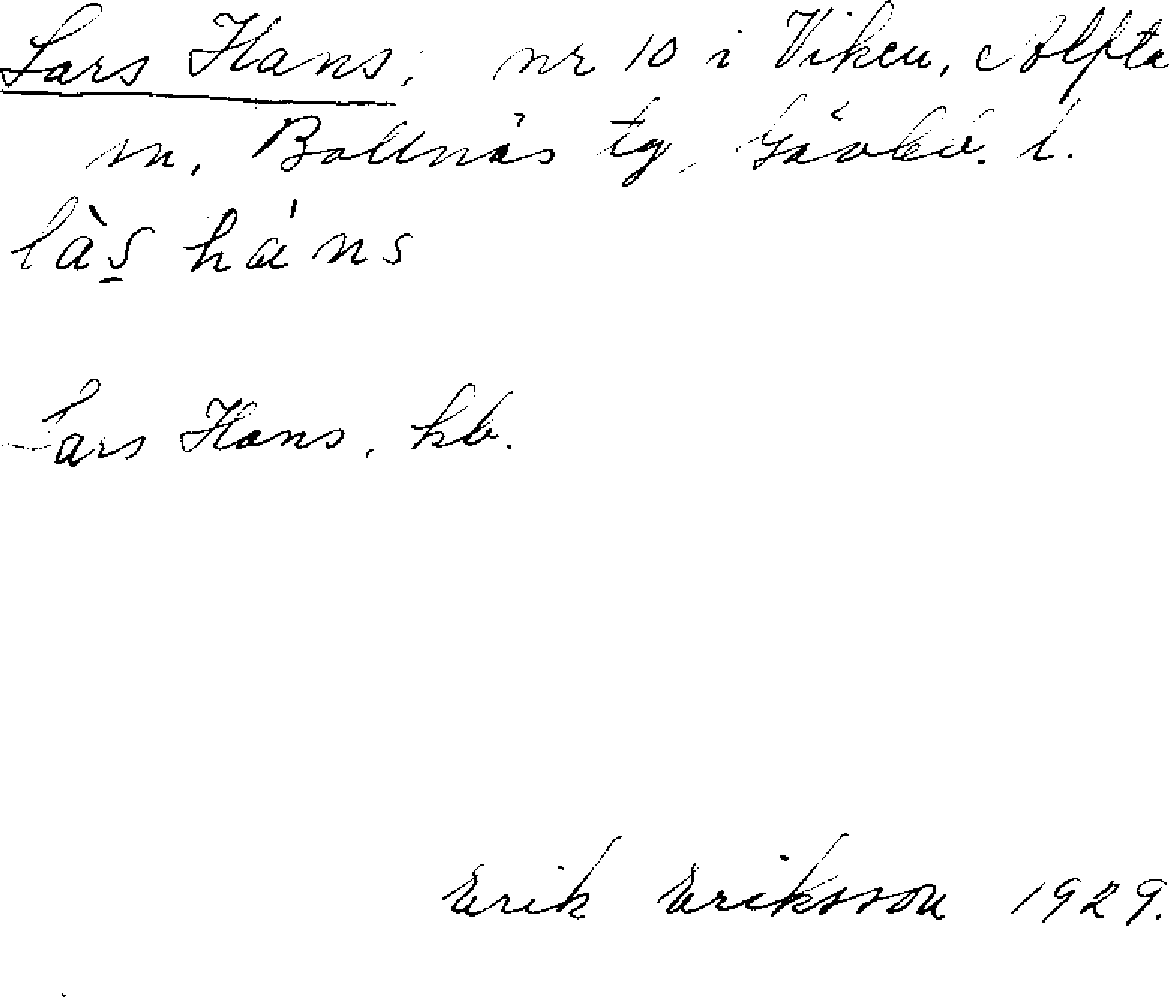 Lars Hans, nr 10 i Viken, Alfta
m, Bollnäs tg, Gävleb. l.
làs̱ háns
Lars Hans, kb.
Erik Eriksson 1929.